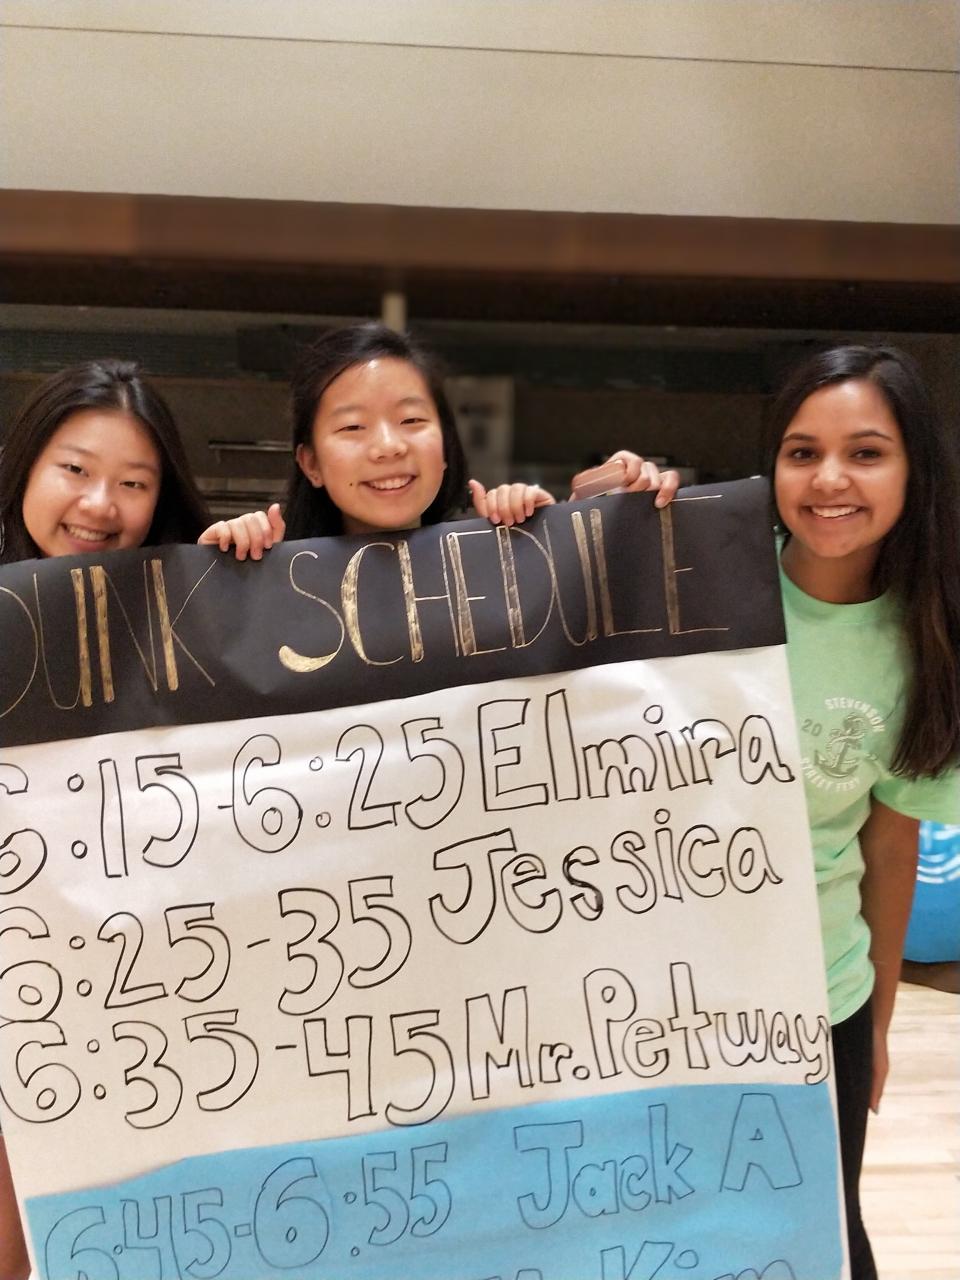 DUNK SCHEDULE
6:15-6:25 Elmira
6:25-35 Jessica
6:35-45 Mr. Petway
6:45-6:55 Jack A
Kim
STEVENSON
20
STREET FEST